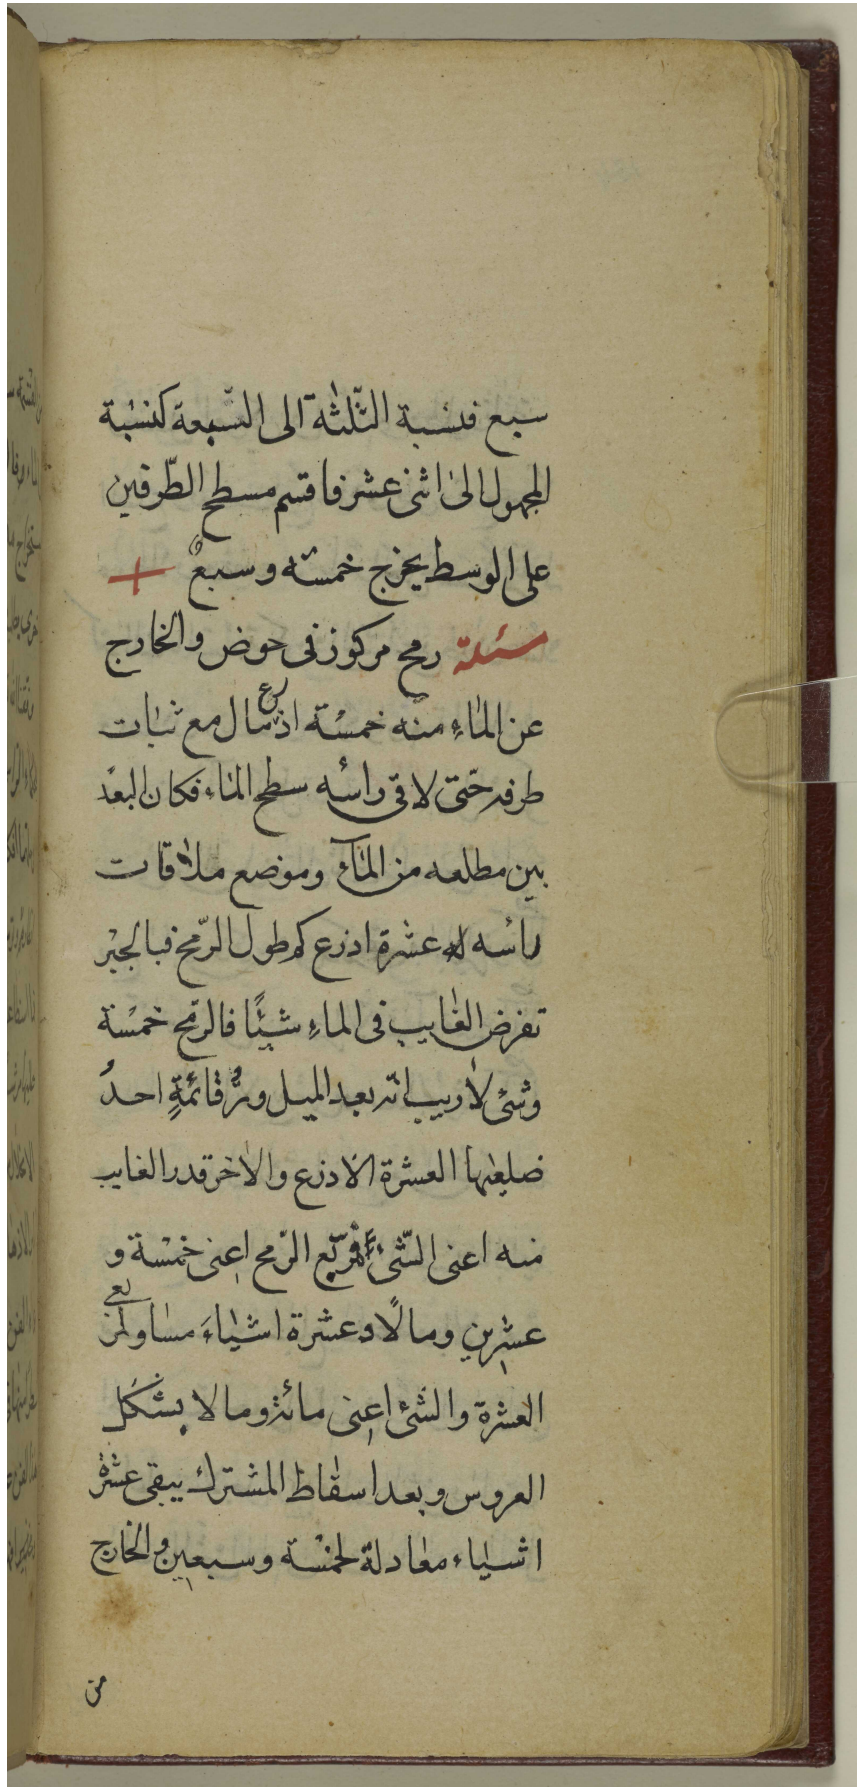 سبع فنسبة الثّلثة الى السّبعة كنسبة
المجهول الى اثنى عشر فاقسم مسطح الطّرفين
على الوسط يخرج خمسة وسبعٌ
مسئلة رمح مركوز فى حوض والخارج
عن الماءِ منه خمسة اذرع مال مع ثبات
طرفه حتّى لاقى راسه سطح الماء فكان البعد
بين مطلعه من الماء وموضع ملاقات
راسه له عشرة اذرع كم طول الرّمح فبالجبر
تفرض الغايب فى الماءِ شيئًا فالرّمح خمسة
وشئ لا ريب انه بعد الميل وتر قائمةٍ احدُ
ضلعيها العشرة الاذرع والاخر قدر الغايب
منه اعنى الشّئ فمربّع الرّمح اعنى خمسة و
عشرين ومالًا وعشرة اشياءَ مساو لمربعى
العشرة والشئ اعنى مائة ومالا بشكل
العروس وبعد اسقاط المشترك يبقى عشرة
اشياء معادلة لخمسة وسبعين والخارج